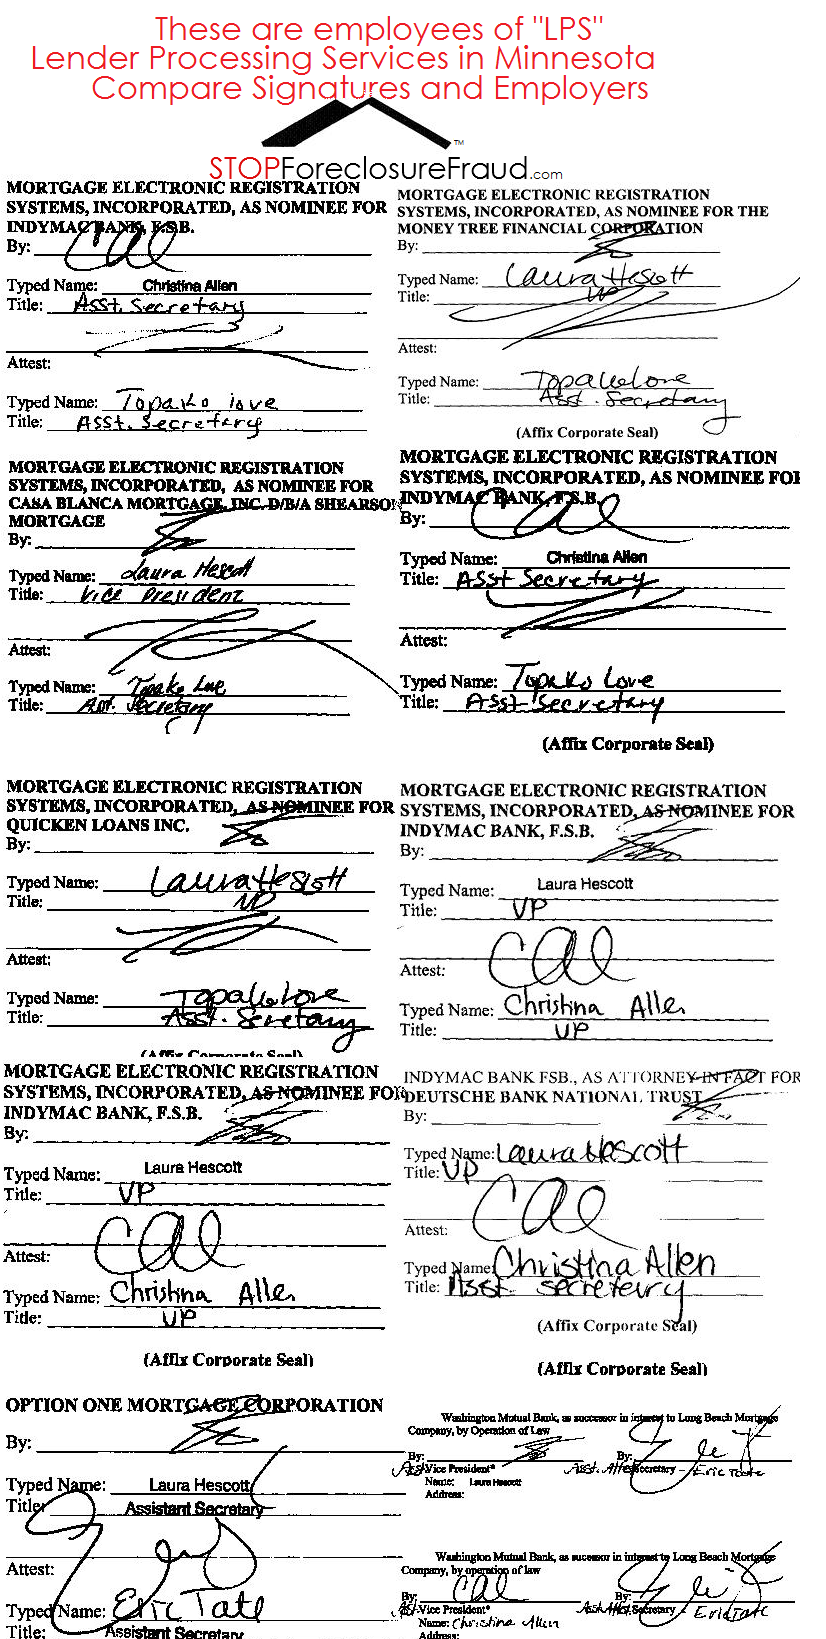 These are employees of "LPS"
Lender Processing Services in Minnesota
Compare Signatures and Employers
STOPForeclosureFraud.com
TM
MORTGAGE ELECTRONIC REGISTRATION
SYSTEMS, INCORPORATED, AS NOMINEE FOR
INDYMAC BANK, F.S.B.
By: CAl
Typed Name: Christina Allen
Title: Asst. Secretary
Attest:
Typed Name: Topako Love
Title: Asst. Secretary
MORTGAGE ELECTRONIC REGISTRATION
SYSTEMS, INCORPORATED, AS NOMINEE FOR THE
MONEY TREE FINANCIAL CORPORATION
By:
Typed Name: Laura Hescott
Title: VP
Attest:
Typed Name: Topako Love
Title: Asst. Secretary
(Affix Corporate Seal)
MORTGAGE ELECTRONIC REGISTRATION
SYSTEMS, INCORPORATED, AS NOMINEE FOR
CASA BLANCA MORTGAGE, INC. D/B/A SHEARSON
MORTGAGE
By:
Typed Name: Laura Hescott
Title: Vice President
Attest:
Typed Name: Topako Love
Title: Asst. Secretary
MORTGAGE ELECTRONIC REGISTRATION
SYSTEMS, INCORPORATED, AS NOMINEE FOR
INDYMAC BANK, F.S.B.
By: CAl
Typed Name: Christina Allen
Title: Asst Secretary
Attest:
Typed Name: Topako Love
Title: Asst Secretary
(Affix Corporate Seal)
MORTGAGE ELECTRONIC REGISTRATION
SYSTEMS, INCORPORATED, AS NOMINEE FOR
QUICKEN LOANS INC.
By:
Typed Name: Laura Hescott
Title: VP
Attest:
Typed Name: Topako Love
Title: Asst. Secretary
(Affix Corporate Seal)
MORTGAGE ELECTRONIC REGISTRATION
SYSTEMS, INCORPORATED, AS NOMINEE FOR
INDYMAC BANK, F.S.B.
By:
Typed Name: Laura Hescott
Title: VP
Attest: CAl
Typed Name: Christina Allen
Title: VP
MORTGAGE ELECTRONIC REGISTRATION
SYSTEMS, INCORPORATED, AS NOMINEE FOR
INDYMAC BANK, F.S.B.
By:
Typed Name: Laura Hescott
Title: VP
Attest: CAl
Typed Name: Christina Allen
Title: VP
(Affix Corporate Seal)
INDYMAC BANK FSB., AS ATTORNEY IN FACT FOR
DEUTSCHE BANK NATIONAL TRUST
By:
Typed Name: Laura Hescott
Title: VP
Attest: CAl
Typed Name: Christina Allen
Title: Asst secretary
(Affix Corporate Seal)
(Affix Corporate Seal)
OPTION ONE MORTGAGE CORPORATION
By:
Typed Name: Laura Hescott
Title: Assistant Secretary
Attest:
Typed Name: Eric Tate
Title: Assistant Secretary
Washington Mutual Bank, as successor in interest to Long Beach Mortgage
Company, by Operation of Law
By: By:
Asst Vice President* Asst. Secretary - Eric Tate
Name: Laura Hescott
Address:
Washington Mutual Bank, as successor in interest to Long Beach Mortgage
Company, by operation of law
By: CAl By:
Asst Vice President* Secretary - Eric Tate
Name: Christina Allen
Address: